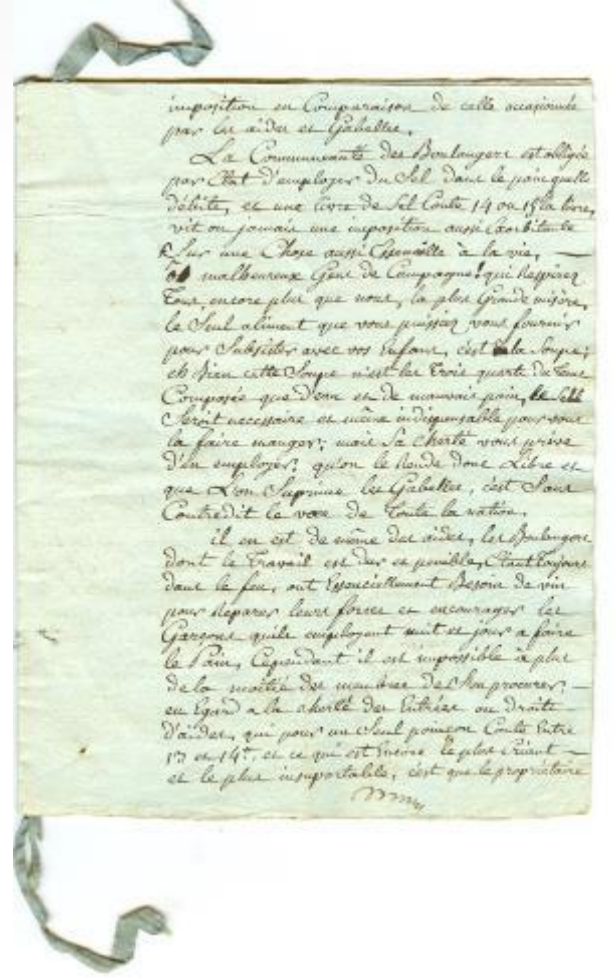 imposition en Comparaison de celle occasionnée
par les aides et Gabelles.
La Communauté des Boulangers est obligée
par Etat d'employer du Sel dans le pain quelle
débite, et une livre de Sel Coute 14 ou 15s la livre,
vit on jamais une imposition aussi Exorbitante
Sur une Chose aussi Essencielle à la vie,
malheureux Gens de Campagne! qui Respirez
Tous encore plus que nous, la plus Grande misère,
le Seul aliment que vous puissiez vous fournir
pour Subsister avec vos Enfans, c'est la Soupe;
eh Bien cette Soupe n'est les Trois quarts du Tems
Composée que d'eau et de mauvais pain, le Sel
Seroit necessaire et même indispensable pour vous
la faire manger; mais Sa cherté vous prive
d'en employer; qu'on le Rende donc Libre et
que L'on Suprime les Gabelles, c'est Sans
Contredit le voeu de Toute la nation.
il en est de même des aides, les Boulangers
dont le Travail est dur et penible, Etant Toujours
dans le feu, ont Essenciellement Besoin de vin
pour Réparer leurs forces et encourager les
Garçons quils employent nuit et jour a faire
le Pain, Cependant il est impossible à plus
de la moitié des membres de S'en procurer,
eu Egard a la cherté des Entrées ou droits
d'aides, qui pour un Seul poinçon Coute Entre
13 et 14t. et ce qui est Encore le plus Criant
et le plus insuportable, c'est que le propriétaire